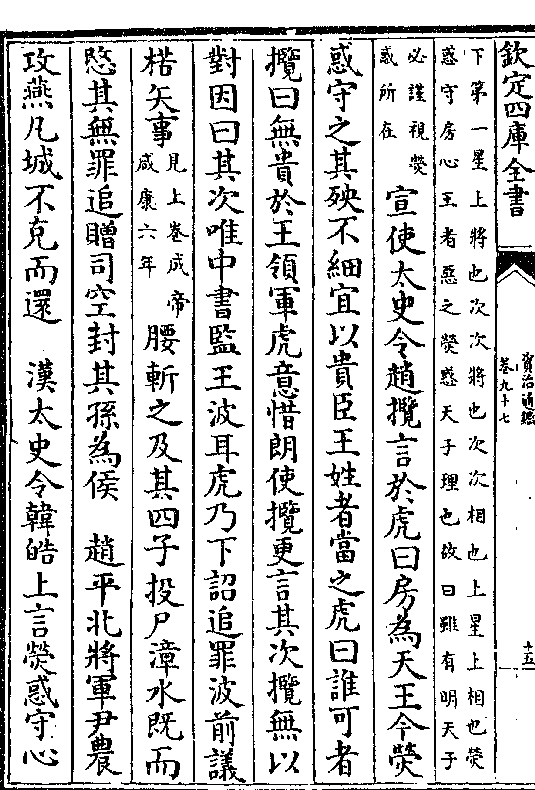 欽定四庫全書
資治通鑑
卷九十七
十五
下第一星上將也次次將也次次相也上星上相也熒
惑守房心王者惡之熒惑天子理也故曰雖有明天子
必謹視熒
惑所在
宣使太史令趙攬言於虎曰房為天王今熒
惑守之其殃不細宜以貴臣王姓者當之虎曰誰可者
攬曰無貴於王領軍虎意惜朗使攬更言其次攬無以
對因曰其次唯中書監王波耳虎乃下詔追罪波前議
楛矢事
見上卷成帝
咸康六年
腰斬之及其四子投尸漳水既而
愍其無罪追贈司空封其孫為侯　趙平北將軍尹農
攻燕凡城不克而還　漢太史令韓皓上言熒惑守心